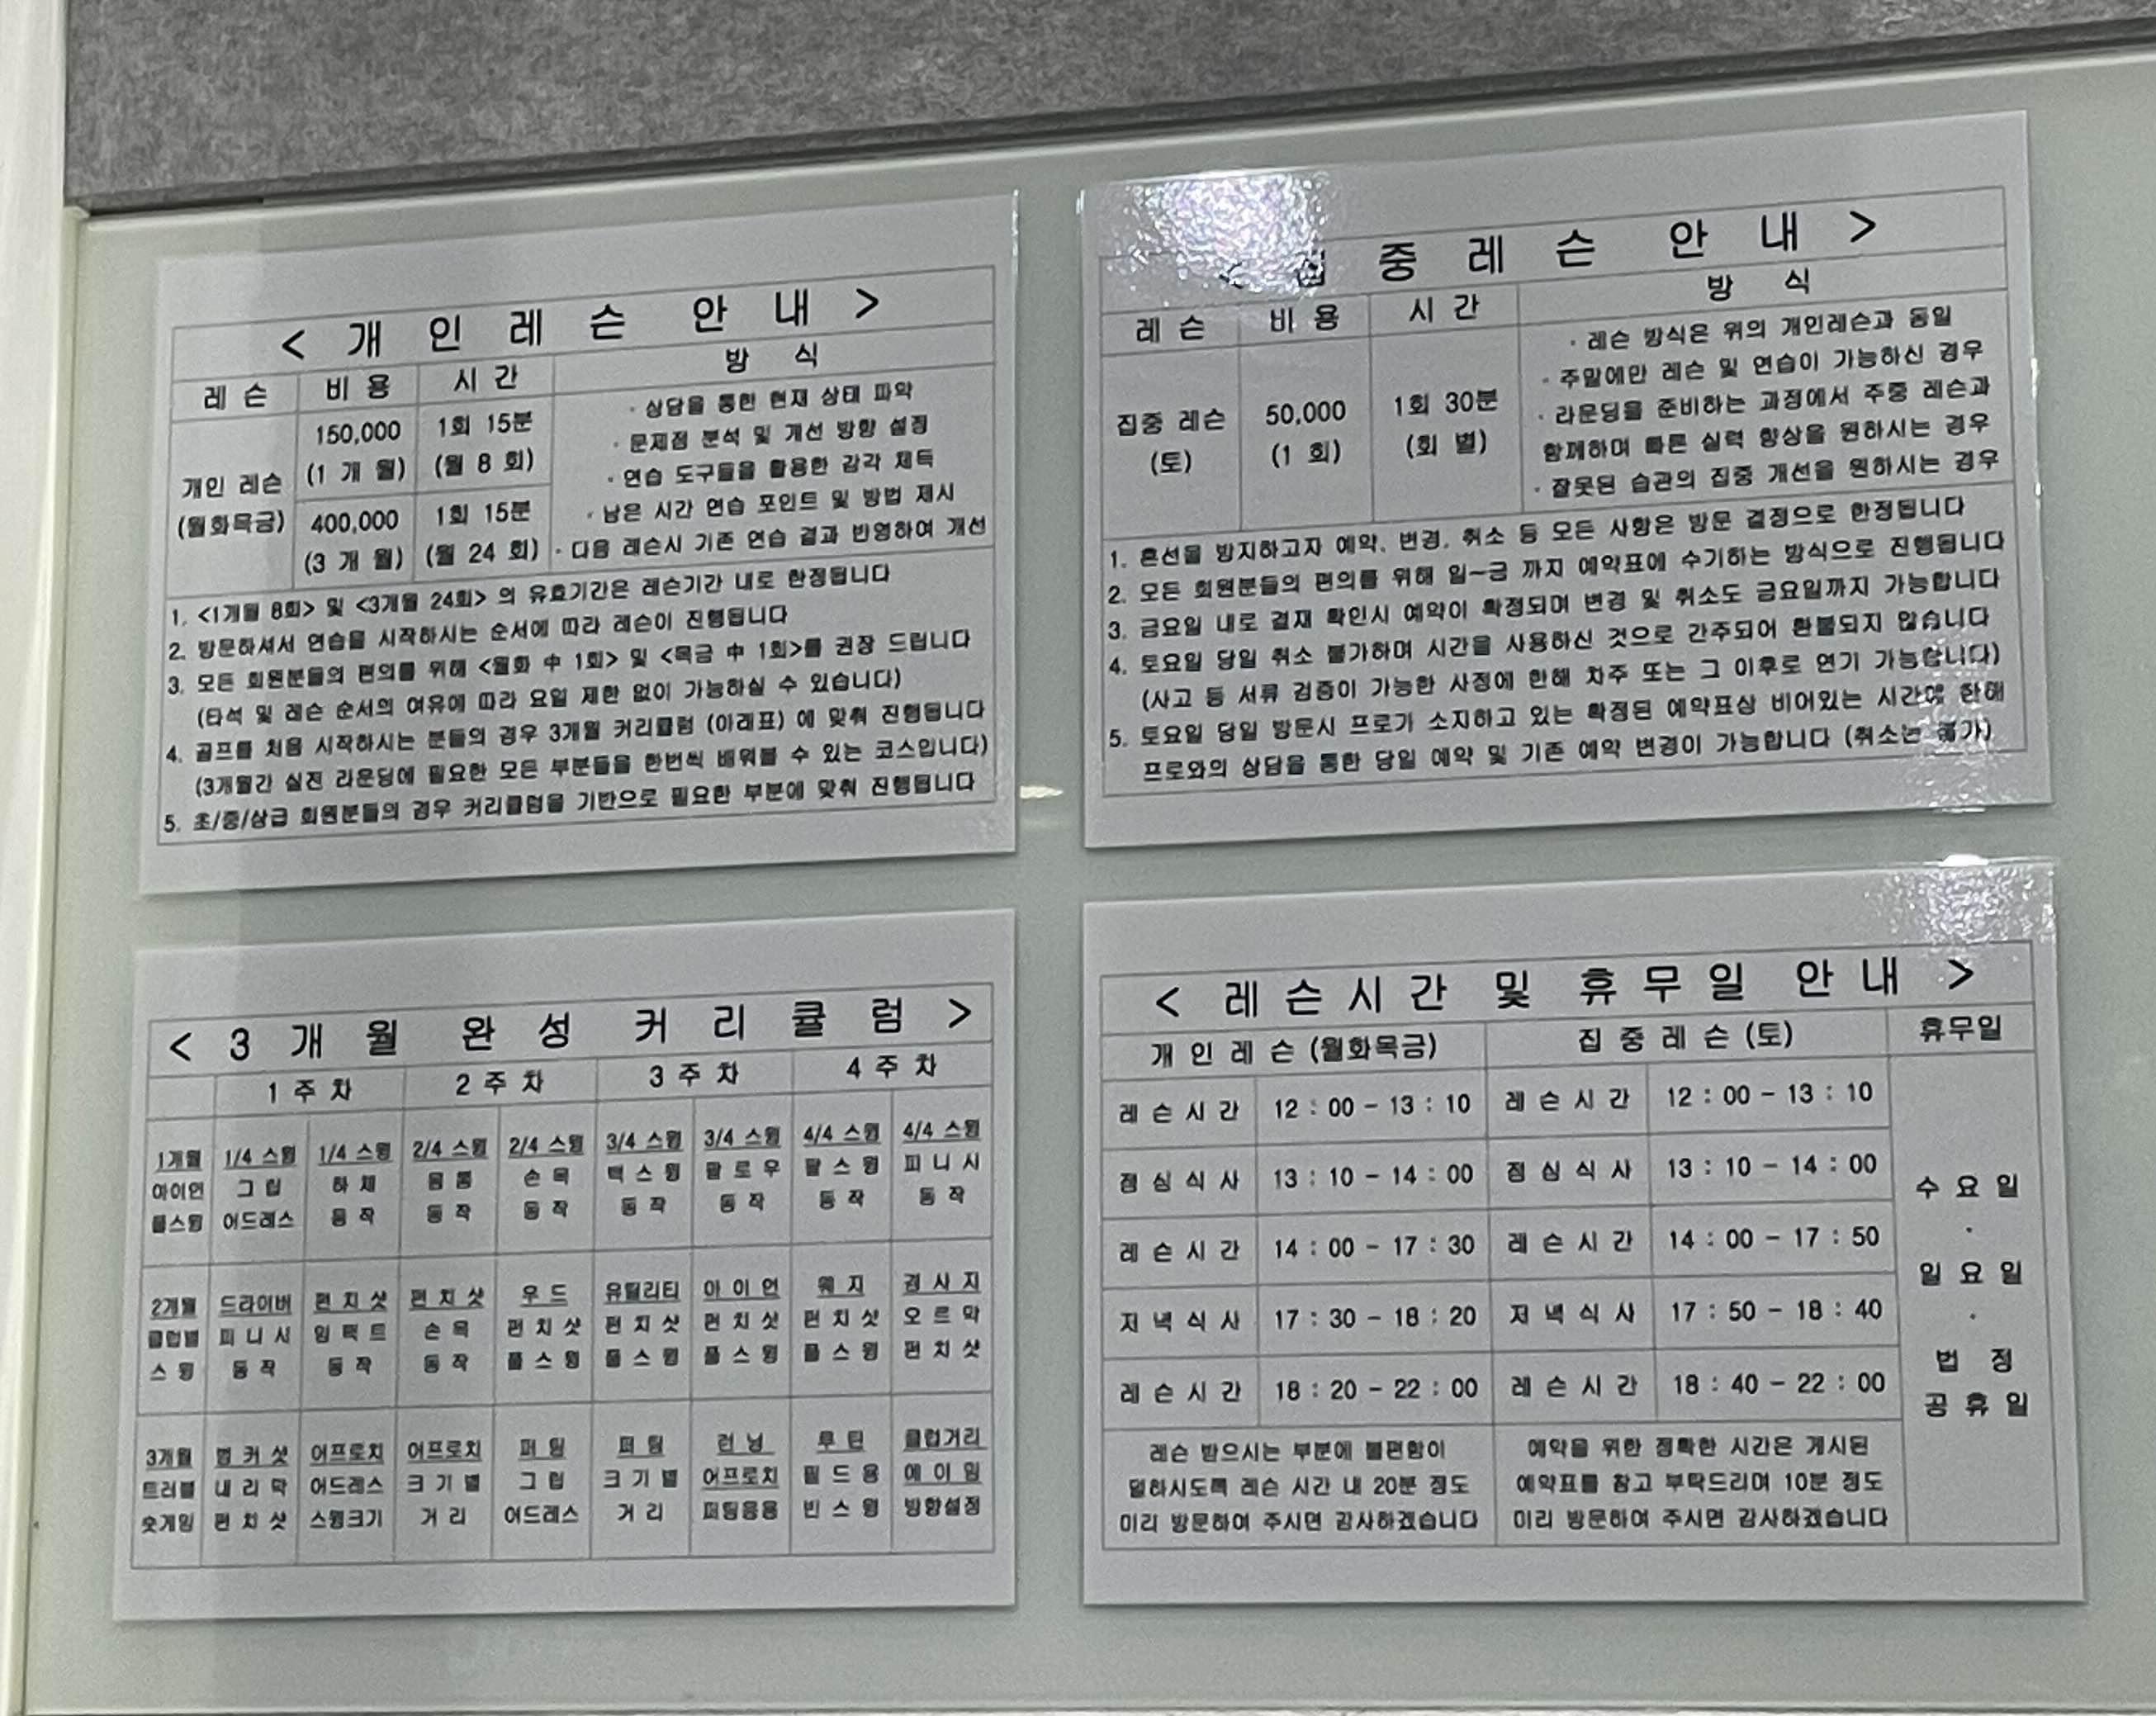 < 개 인 레 슨 안 내 >
레 슨 비 용 시 간 방 식
개인 레슨
(월화목금)
150,000
(1 개 월)
1회 15분
(월 8 회)
400,000
(3 개 월)
1회 15분
(월 24 회)
· 상담을 통한 현재 상태 파악
· 문제점 분석 및 개선 방향 설정
· 연습 도구들을 활용한 감각 체득
· 남은 시간 연습 포인트 및 방법 제시
· 다음 레슨시 기존 연습 결과 반영하여 개선
1. <1개월 8회> 및 <3개월 24회> 의 유효기간은 레슨기간 내로 한정됩니다
2. 방문하셔서 연습을 시작하시는 순서에 따라 레슨이 진행됩니다
3. 모든 회원분들의 편의를 위해 <월화 中 1회> 및 <목금 中 1회>를 권장 드립니다
(타석 및 레슨 순서의 여유에 따라 요일 제한 없이 가능하실 수 있습니다)
4. 골프를 처음 시작하시는 분들의 경우 3개월 커리큘럼 (아래표) 에 맞춰 진행됩니다
(3개월간 실전 라운딩에 필요한 모든 부분들을 한번씩 배워볼 수 있는 코스입니다)
5. 초/중/상급 회원분들의 경우 커리큘럼을 기반으로 필요한 부분에 맞춰 진행됩니다
< 집 중 레 슨 안 내 >
레 슨 비 용 시 간 방 식
집중 레슨
(토)
50,000
(1 회)
1회 30분
(회 별)
· 레슨 방식은 위의 개인레슨과 동일
· 주말에만 레슨 및 연습이 가능하신 경우
· 라운딩을 준비하는 과정에서 주중 레슨과
함께하며 빠른 실력 향상을 원하시는 경우
· 잘못된 습관의 집중 개선을 원하시는 경우
1. 혼선을 방지하고자 예약, 변경, 취소 등 모든 사항은 방문 결정으로 한정됩니다
2. 모든 회원분들의 편의를 위해 일~금 까지 예약표에 수기하는 방식으로 진행됩니다
3. 금요일 내로 결재 확인시 예약이 확정되며 변경 및 취소도 금요일까지 가능합니다
4. 토요일 당일 취소 불가하며 시간을 사용하신 것으로 간주되어 환불되지 않습니다
(사고 등 서류 검증이 가능한 사정에 한해 차주 또는 그 이후로 연기 가능합니다)
5. 토요일 당일 방문시 프로가 소지하고 있는 확정된 예약표상 비어있는 시간에 한해
프로와의 상담을 통한 당일 예약 및 기존 예약 변경이 가능합니다 (취소는 불가)
< 3 개 월 완 성 커 리 큘 럼 >
1 주 차 2 주 차 3 주 차 4 주 차
1개월 1/4 스윙 1/4 스윙 2/4 스윙 2/4 스윙 3/4 스윙 3/4 스윙 4/4 스윙 4/4 스윙
아이언 그 립 하 체 몸 통 손 목 백 스 윙 팔 로 우 팔 스 윙 피 니 시
풀스윙 어드레스 동 작 동 작 동 작 동 작 동 작 동 작 동 작
2개월 드라이버 펀 치 샷 펀 치 샷 우 드 유틸리티 아 이 언 웨 지 경 사 지
클럽별 피 니 시 임 팩 트 손 목 펀 치 샷 펀 치 샷 펀 치 샷 펀 치 샷 오 르 막
스 윙 동 작 동 작 동 작 풀 스 윙 풀 스 윙 풀 스 윙 풀 스 윙 펀 치 샷
3개월 벙 커 샷 어프로치 어프로치 퍼 팅 퍼 팅 런 닝 루 틴 클럽거리
트러블 내 리 막 어드레스 크 기 별 그 립 크 기 별 어프로치 필 드 용 에 이 밍
숏게임 펀 치 샷 스윙크기 거 리 어드레스 거 리 퍼팅응용 빈 스 윙 방향설정
< 레 슨 시 간 및 휴 무 일 안 내 >
개 인 레 슨 (월화목금) 집 중 레 슨 (토) 휴무일
레 슨 시 간 12 : 00 - 13 : 10 레 슨 시 간 12 : 00 - 13 : 10
점 심 식 사 13 : 10 - 14 : 00 점 심 식 사 13 : 10 - 14 : 00
레 슨 시 간 14 : 00 - 17 : 30 레 슨 시 간 14 : 00 - 17 : 50
저 녁 식 사 17 : 30 - 18 : 20 저 녁 식 사 17 : 50 - 18 : 40
레 슨 시 간 18 : 20 - 22 : 00 레 슨 시 간 18 : 40 - 22 : 00
수 요 일
·
일 요 일
·
법 정
공 휴 일
레슨 받으시는 부분에 불편함이
덜하시도록 레슨 시간 내 20분 정도
미리 방문하여 주시면 감사하겠습니다
예약을 위한 정확한 시간은 게시된
예약표를 참고 부탁드리며 10분 정도
미리 방문하여 주시면 감사하겠습니다